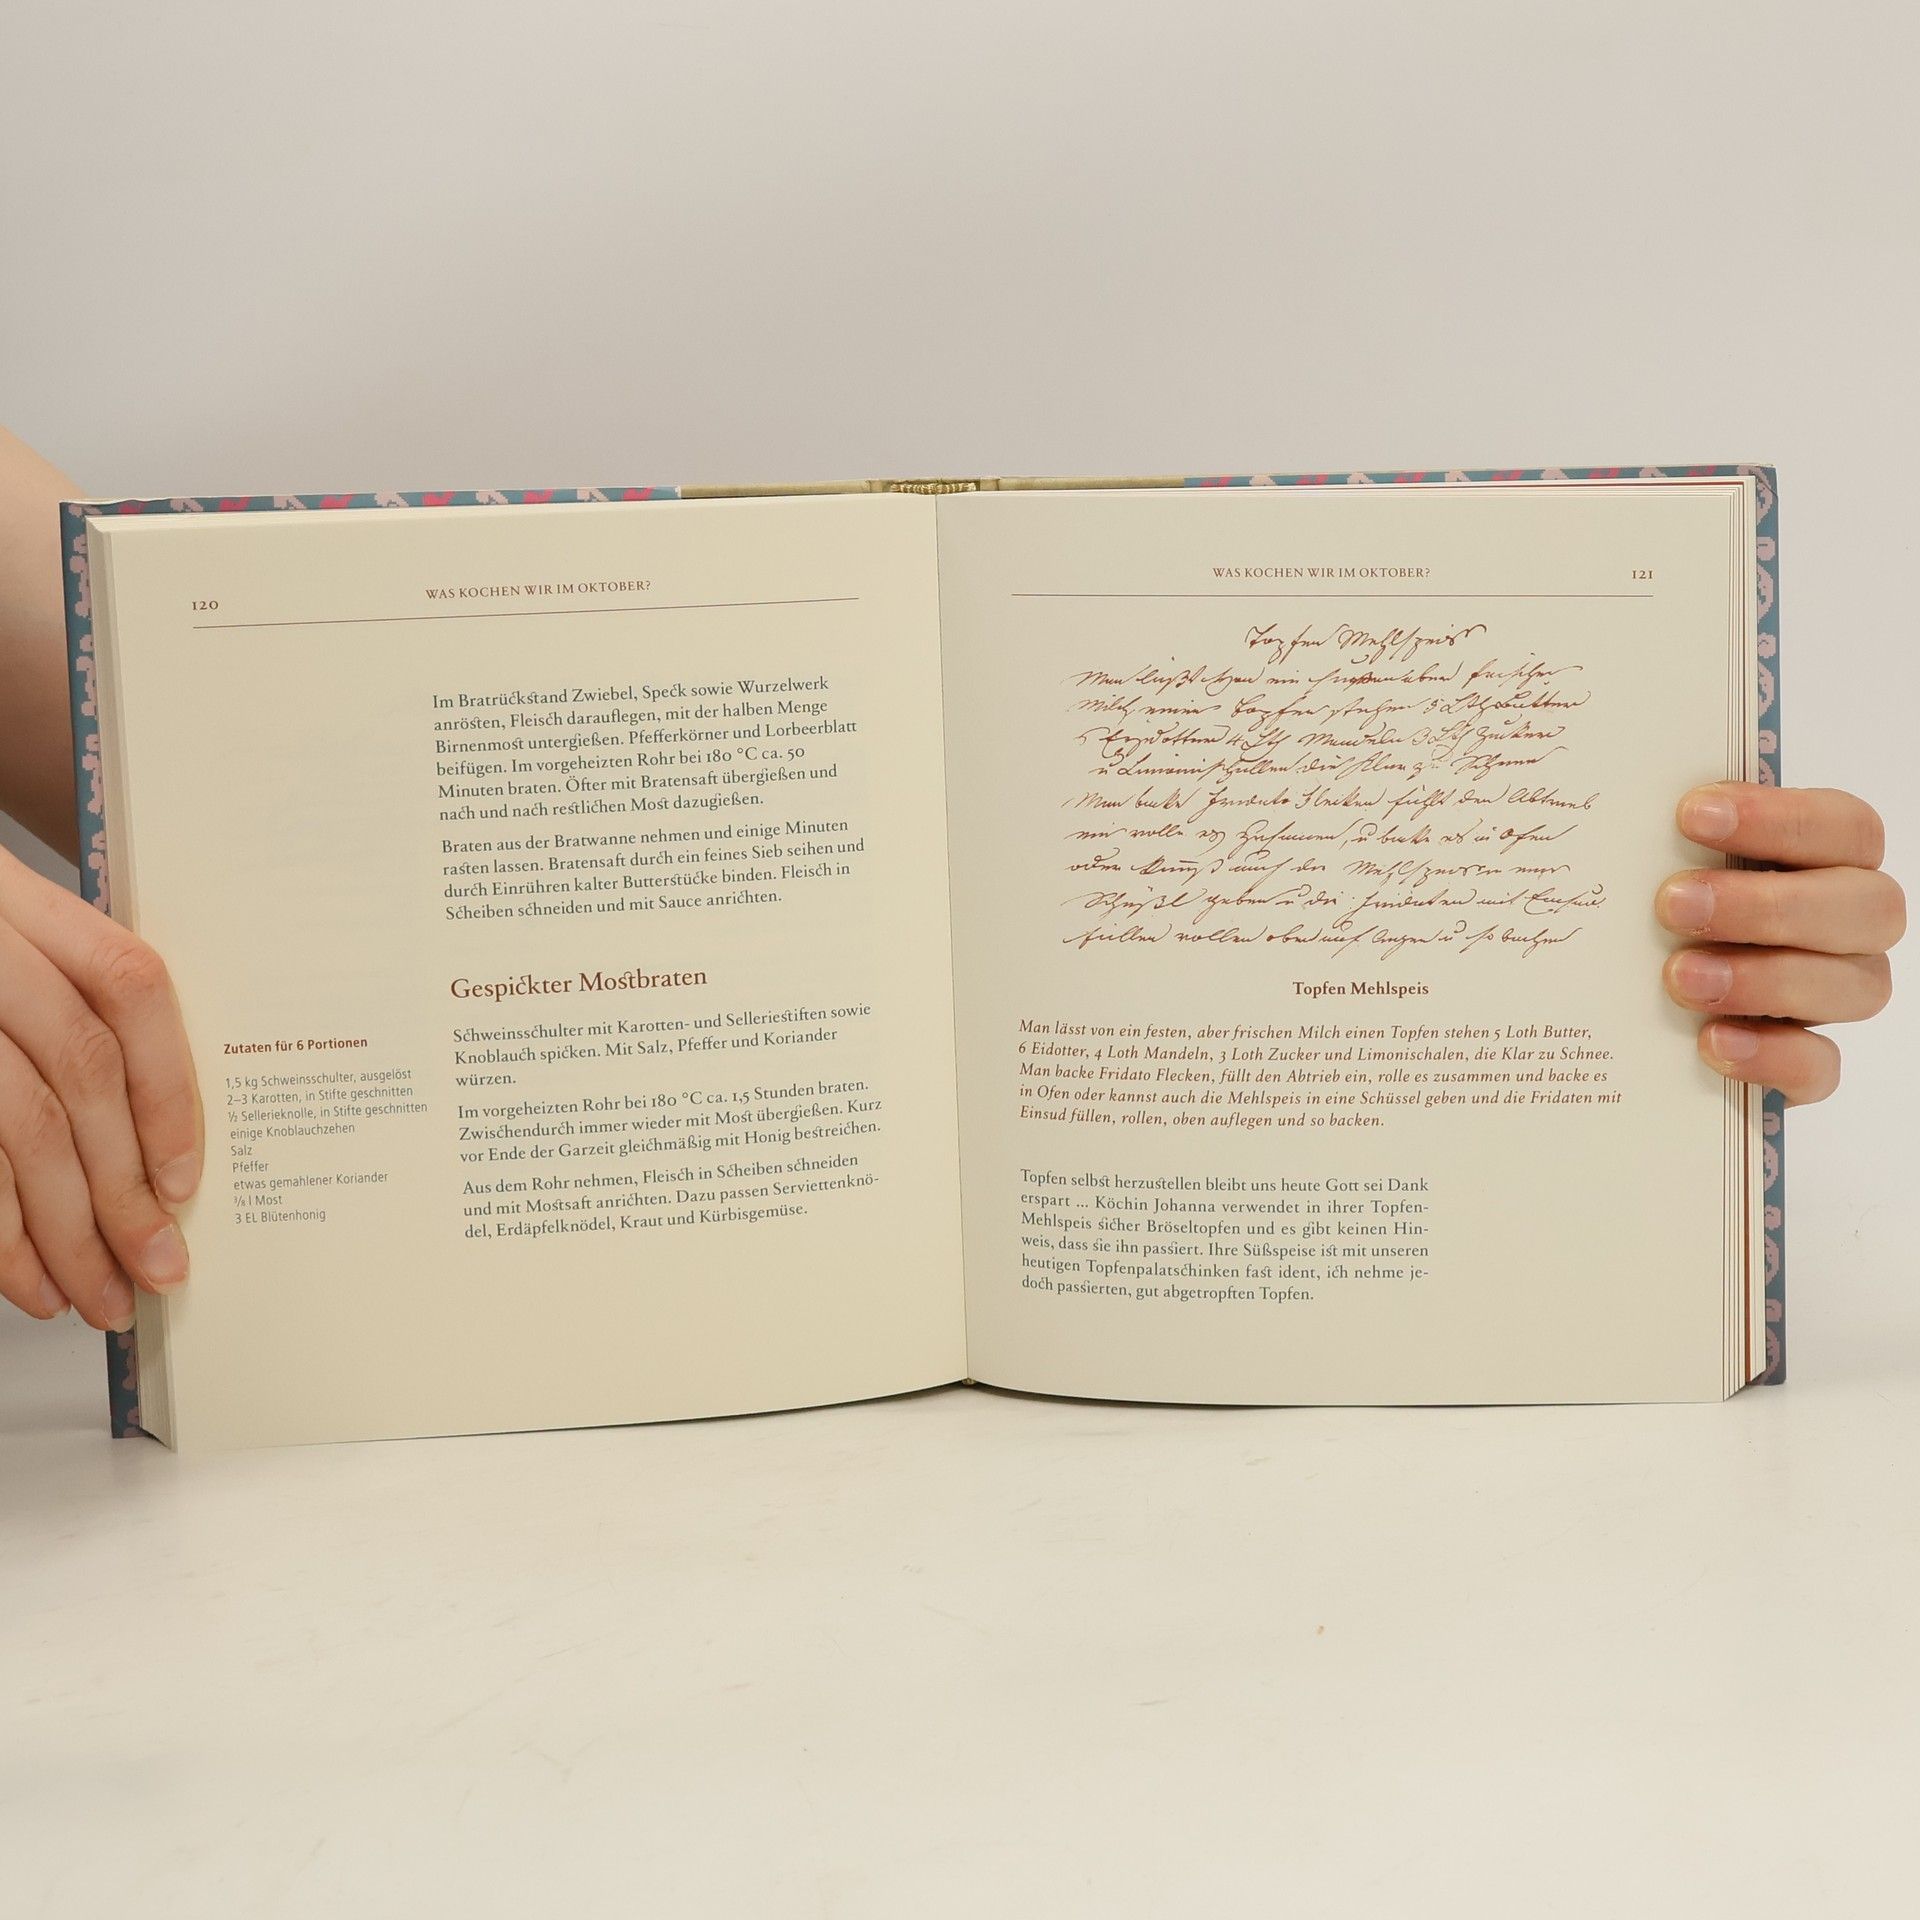 120
WAS KOCHEN WIR IM OKTOBER?
Im Bratrückstand Zwiebel, Speck sowie Wurzelwerk
anrösten, Fleisch darauflegen, mit der halben Menge
Birnenmost untergießen. Pfefferkörner und Lorbeerblatt
beifügen. Im vorgeheizten Rohr bei 180 °C ca. 50
Minuten braten. Öfter mit Bratensaft übergießen und
nach und nach restlichen Most dazugießen.
Braten aus der Bratwanne nehmen und einige Minuten
rasten lassen. Bratensaft durch ein feines Sieb seihen und
durch Einrühren kalter Butterstücke binden. Fleisch in
Scheiben schneiden und mit Sauce anrichten.
Gespickter Mostbraten
Zutaten für 6 Portionen
1,5 kg Schweinsschulter, ausgelöst
2–3 Karotten, in Stifte geschnitten
½ Sellerieknolle, in Stifte geschnitten
einige Knoblauchzehen
Salz
Pfeffer
etwas gemahlener Koriander
⅜ l Most
3 EL Blütenhonig
Schweinsschulter mit Karotten- und Selleriestiften sowie
Knoblauch spicken. Mit Salz, Pfeffer und Koriander
würzen.
Im vorgeheizten Rohr bei 180 °C ca. 1,5 Stunden braten.
Zwischendurch immer wieder mit Most übergießen. Kurz
vor Ende der Garzeit gleichmäßig mit Honig bestreichen.
Aus dem Rohr nehmen, Fleisch in Scheiben schneiden
und mit Mostsaft anrichten. Dazu passen Serviettenknö-
del, Erdäpfelknödel, Kraut und Kürbisgemüse.
WAS KOCHEN WIR IM OKTOBER?
121
Topfen Mehlspeis
Man läßt von ein aber frischen
Milch einen Topfen stehen 5 Lth Butter
4 Lth Mandeln 3 Lth Zucker
u Limonischallen die Klar zu Schnee
Man backe Fridato Flecken füllt den Abtrieb
ein rolle es zusamen, u backe es in Ofen
oder kannst auch die Mehlspeis in einer
Schüßl geben u die Fridaten mit
füllen rollen oben auf legen u so backen
Topfen Mehlspeis
Man lässt von ein festen, aber frischen Milch einen Topfen stehen 5 Loth Butter,
6 Eidotter, 4 Loth Mandeln, 3 Loth Zucker und Limonischalen, die Klar zu Schnee.
Man backe Fridato Flecken, füllt den Abtrieb ein, rolle es zusammen und backe es
in Ofen oder kannst auch die Mehlspeis in eine Schüssel geben und die Fridaten mit
Einsud füllen, rollen, oben auflegen und so backen.
Topfen selbst herzustellen bleibt uns heute Gott sei Dank
erspart ... Köchin Johanna verwendet in ihrer Topfen-
Mehlspeis sicher Bröseltopfen und es gibt keinen Hin-
weis, dass sie ihn passiert. Ihre Süßspeise ist mit unseren
heutigen Topfenpalatschinken fast ident, ich nehme je-
doch passierten, gut abgetropften Topfen.